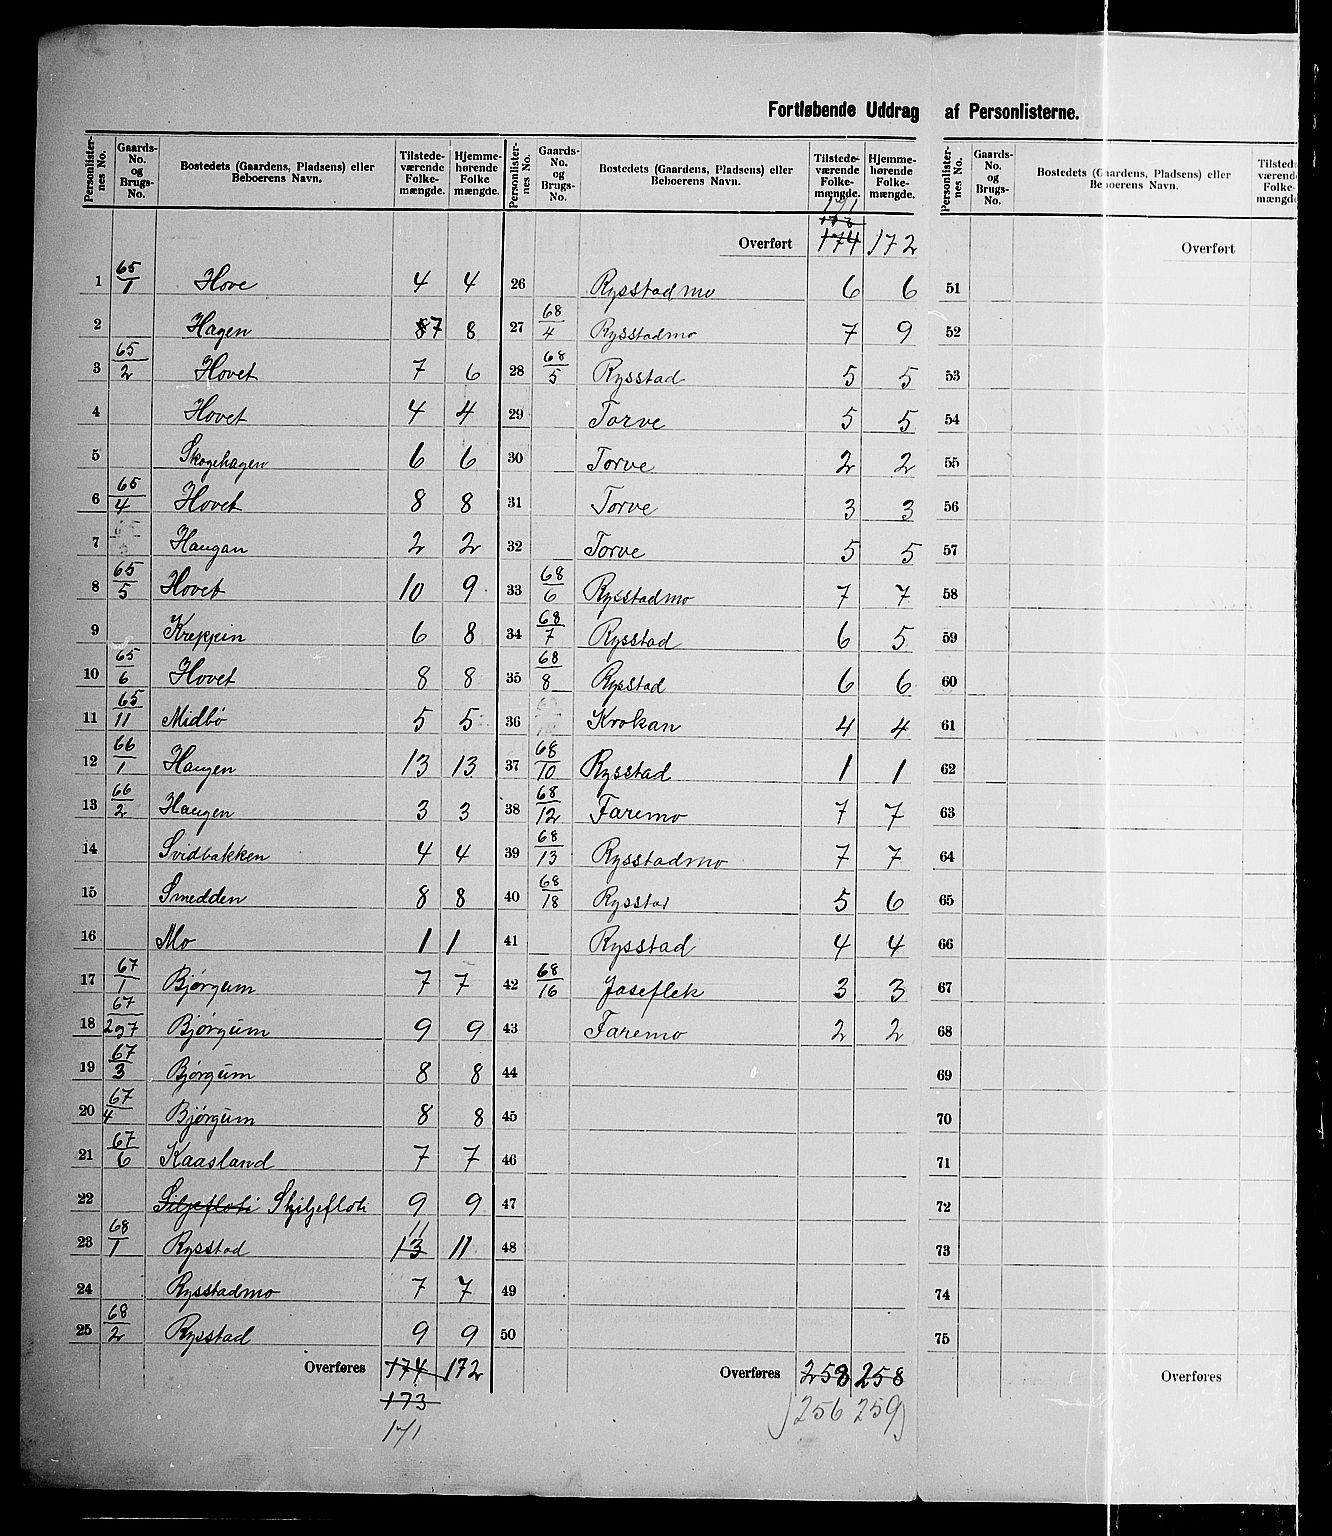 Fortløbende Uddrag af Personlisterne.
Personlister-nes No. | Gaards-No. og Brugs-No. | Bostedets (Gaardens, Pladsens) eller Beboerens Navn. | Tilstede-værende Folke-mængde. | Hjemme-hørende Folke mængde.
1 65/1 Hove 4 4
2 Hagen 87 8
3 65/2 Hovet 7 6
4 Hovet 4 4
5 Skogehagen 6 6
6 65/4 Hovet 8 8
7 Haugan 2 2
8 65/5 Hovet 10 9
9 Kreppin 6 8
10 65/6 Hovet 8 8
11 65/11 Midbö 5 5
12 66/1 Haugen 13 13
13 66/2 Haugen 3 3
14 Svidbakken 4 4
15 Smedden 8 8
16 Mo 1 1
17 67/1 Bjørgum 7 7
18 67/2 og 7 Bjørgum 9 9
19 67/3 Bjørgum 8 8
20 67/4 Bjørgum 8 8
21 67/6 Kaasland 7 7
22 Siljefloti Skjiljefloti 9 9
23 68/1 Rysstad 13 11 11
24 Rysstadmo 7 7
25 68/2 Rysstad 9 9
Overføres 174 172
173
171
Personlister-nes No. | Gaards-No. og Brugs-No. | Bostedets (Gaardens, Pladsens) eller Beboerens Navn. | Tilstede-værende Folke-mængde. | Hjemme-hørende Folke-mængde.
171
173
Overført 174 172
26 Rysstadmo 6 6
27 68/4 Rysstadmo 7 9
28 68/5 Rysstad 5 5
29 Torve 5 5
30 Torve 2 2
31 Torve 3 3
32 Torve 5 5
33 68/6 Rysstadmo 7 7
34 68/7 Rysstad 6 5
35 68/8 Rysstad 6 6
36 Krokan 4 4
37 68/10 Rysstad 1 1
38 68/12 Faremo 7 7
39 68/13 Rysstadmo 7 7
40 68/18 Rysstad 5 6
41 Rysstad 4 4
42 68/16 Joseflek 3 3
43 Faremo 2 2
44
45
46
47
48
49
50
Overføres 258 258
256 259
Personlister-nes No. | Gaards-No. og Brugs-No. | Bostedets (Gaardens, Pladsens) eller Beboerens Navn. | Tilstede-værende Folke-mængde.
Overført
51
52
53
54
55
56
57
58
59
60
61
62
63
64
65
66
67
68
69
70
71
72
73
74
75
Overføres